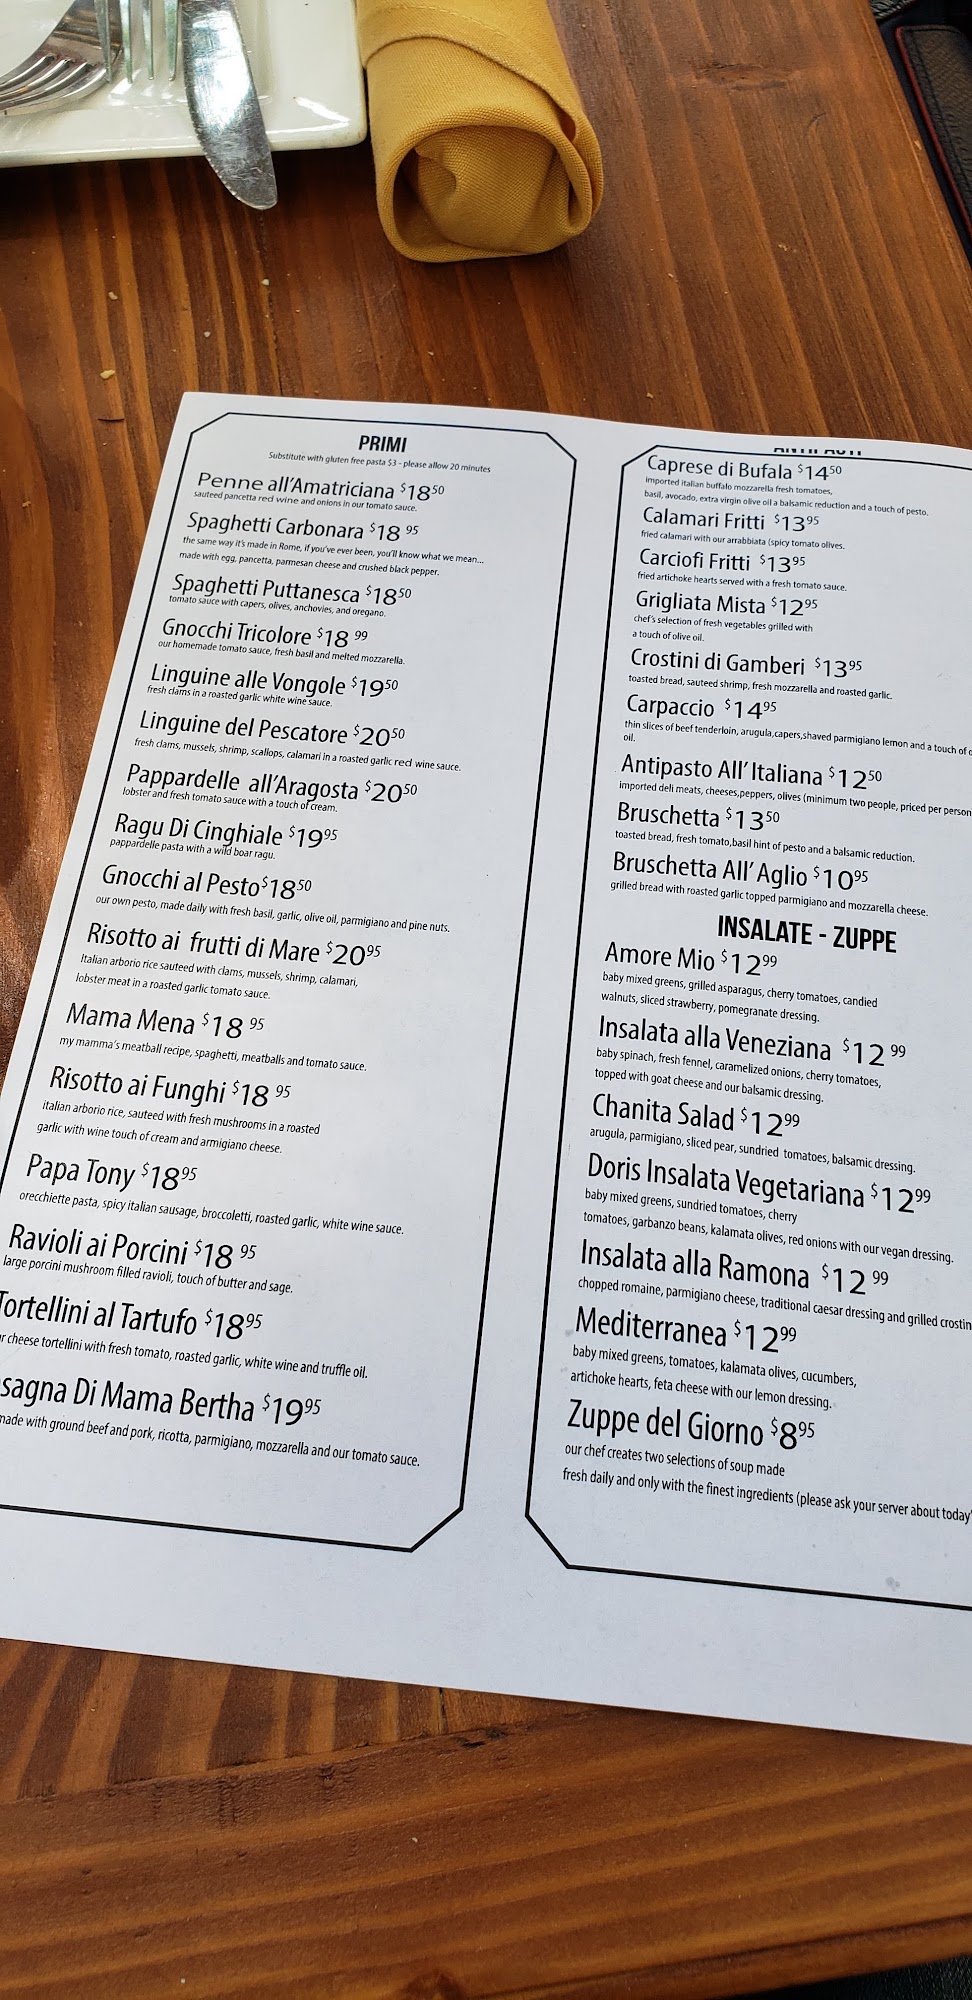 PRIMI
Substitute with gluten free pasta $3 - please allow 20 minutes
Penne all'Amatriciana $18 50
sauteed pancetta red wine and onions in our tomato sauce.
Spaghetti Carbonara $18 95
the same way it's made in Rome, if you've ever been, you'll know what we mean...
made with egg, pancetta, parmesan cheese and crushed black pepper.
Spaghetti Puttanesca $18 50
tomato sauce with capers, olives, anchovies, and oregano.
Gnocchi Tricolore $18 99
our homemade tomato sauce, fresh basil and melted mozzarella.
Linguine alle Vongole $19 50
fresh clams in a roasted garlic white wine sauce.
Linguine del Pescatore $20 50
fresh clams, mussels, shrimp, scallops, calamari in a roasted garlic red wine sauce.
Pappardelle all'Aragosta $20 50
lobster and fresh tomato sauce with a touch of cream.
Ragu Di Cinghiale $19 95
pappardelle pasta with a wild boar ragu.
Gnocchi al Pesto $18 50
our own pesto, made daily with fresh basil, garlic, olive oil, parmigiano and pine nuts.
Risotto ai frutti di Mare $20 95
Italian arborio rice sauteed with clams, mussels, shrimp, calamari,
lobster meat in a roasted garlic tomato sauce.
Mama Mena $18 95
my mamma's meatball recipe, spaghetti, meatballs and tomato sauce.
Risotto ai Funghi $18 95
italian arborio rice, sauteed with fresh mushrooms in a roasted
garlic with wine touch of cream and armigiano cheese.
Papa Tony $18 95
orecchiette pasta, spicy italian sausage, broccoletti, roasted garlic, white wine sauce.
Ravioli ai Porcini $18 95
large porcini mushroom filled ravioli, touch of butter and sage.
Tortellini al Tartufo $18 95
r cheese tortellini with fresh tomato, roasted garlic, white wine and truffle oil.
sagna Di Mama Bertha $19 95
made with ground beef and pork, ricotta, parmigiano, mozzarella and our tomato sauce.
Caprese di Bufala $14 50
imported italian buffalo mozzarella fresh tomatoes,
basil, avocado, extra virgin olive oil a balsamic reduction and a touch of pesto.
Calamari Fritti $13 95
fried calamari with our arrabbiata (spicy tomato olives.
Carciofi Fritti $13 95
fried artichoke hearts served with a fresh tomato sauce.
Grigliata Mista $12 95
chef's selection of fresh vegetables grilled with
a touch of olive oil.
Crostini di Gamberi $13 95
toasted bread, sauteed shrimp, fresh mozzarella and roasted garlic.
Carpaccio $14 95
thin slices of beef tenderloin, arugula,capers,shaved parmigiano lemon and a touch of
oil.
Antipasto All' Italiana $12 50
imported deli meats, cheeses,peppers, olives (minimum two people, priced per person
Bruschetta $13 50
toasted bread, fresh tomato,basil hint of pesto and a balsamic reduction.
Bruschetta All' Aglio $10 95
grilled bread with roasted garlic topped parmigiano and mozzarella cheese.
INSALATE - ZUPPE
Amore Mio $12 99
baby mixed greens, grilled asparagus, cherry tomatoes, candied
walnuts, sliced strawberry, pomegranate dressing.
Insalata alla Veneziana $12 99
baby spinach, fresh fennel, caramelized onions, cherry tomatoes,
topped with goat cheese and our balsamic dressing.
Chanita Salad $12 99
arugula, parmigiano, sliced pear, sundried tomatoes, balsamic dressing.
Doris Insalata Vegetariana $12 99
baby mixed greens, sundried tomatoes, cherry
tomatoes, garbanzo beans, kalamata olives, red onions with our vegan dressing.
Insalata alla Ramona $12 99
chopped romaine, parmigiano cheese, traditional caesar dressing and grilled crostin
Mediterranea $12 99
baby mixed greens, tomatoes, kalamata olives, cucumbers,
artichoke hearts, feta cheese with our lemon dressing.
Zuppe del Giorno $8 95
our chef creates two selections of soup made
fresh daily and only with the finest ingredients (please ask your server about today'